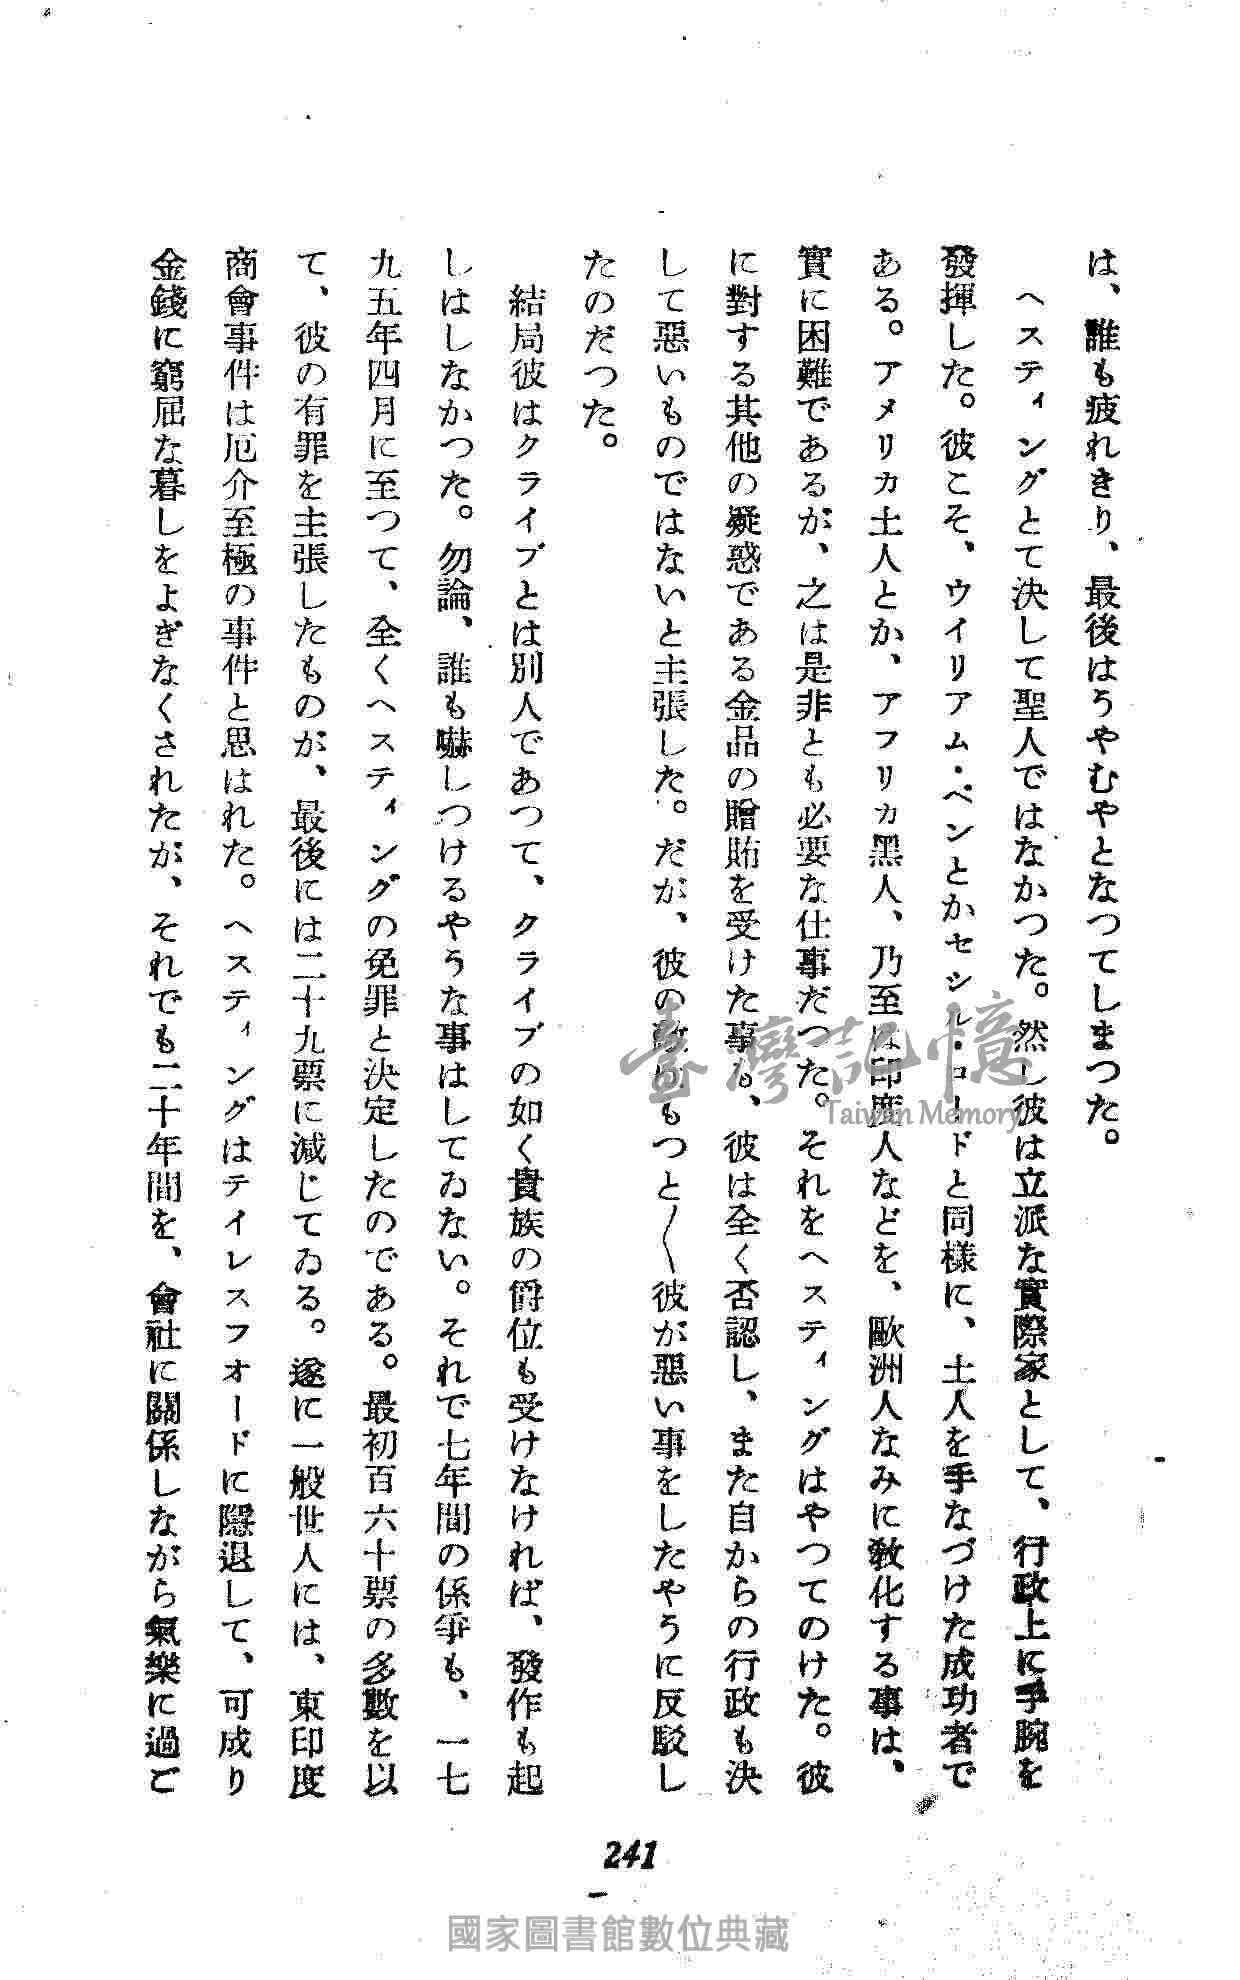 は、誰も疲れきり、最後はうやむやとなつてしまつた。
ヘスティングとて決して聖人ではなかつた。然し彼は立派な實際家として、行政上に手腕を
發揮した。彼こそ、ウイリアム・ペンとかセシル・ローードと同様に、土人を手なづけた成功者で
ある。アメリカ土人とか、アフリカ黑人、乃至は印度人などを、歐洲人なみに敎化する事は、
實に困難であるが、之は是非とも必要な仕事だつた。それをヘスティングはやつてのけた。彼
に對する其他の疑惑である金品の贈賄を受けた事も、彼は全く否認し、また自からの行政も決
して惡いものではないと主張した。だが、彼の敵はもつと〳〵彼が惡い事をしたやうに反駁し
たのだつた。
結局彼はクライブとは別人であつて、クライブの如く貴族の爵位も受けなければ、發作も起
しはしなかつた。勿論、誰も嚇しつけるやうな事はしてゐない。それで七年間の係爭も、一七
九五年四月に至つて、全くヘスティングの免罪と決定したのである。最初百六十票の多數を以
て、彼の有罪を主張したものが、最後には二十九票に減じてゐる。遂に一般世人には、東印度
商會事件は厄介至極の事件と思はれた。ヘスティングはテイレスフオードに隱退して、可成り
金錢に窮屈な暮しをよぎなくされたが、それでも二十年間を、會社に關係しながら氣樂に過ご
241
臺灣記憶
Taiwan Memory
國家圖書館數位典藏